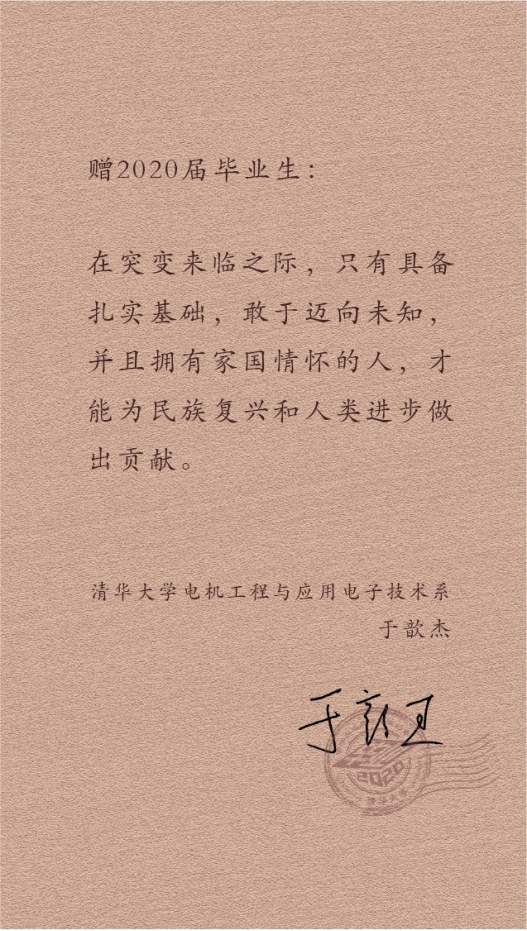 赠2020届毕业生：
在突变来临之际，只有具备
扎实基础，敢于迈向未知，
并且拥有家国情怀的人，才
能为民族复兴和人类进步做
出贡献。
清华大学电机工程与应用电子技术系
于歆杰
2020
清华大学